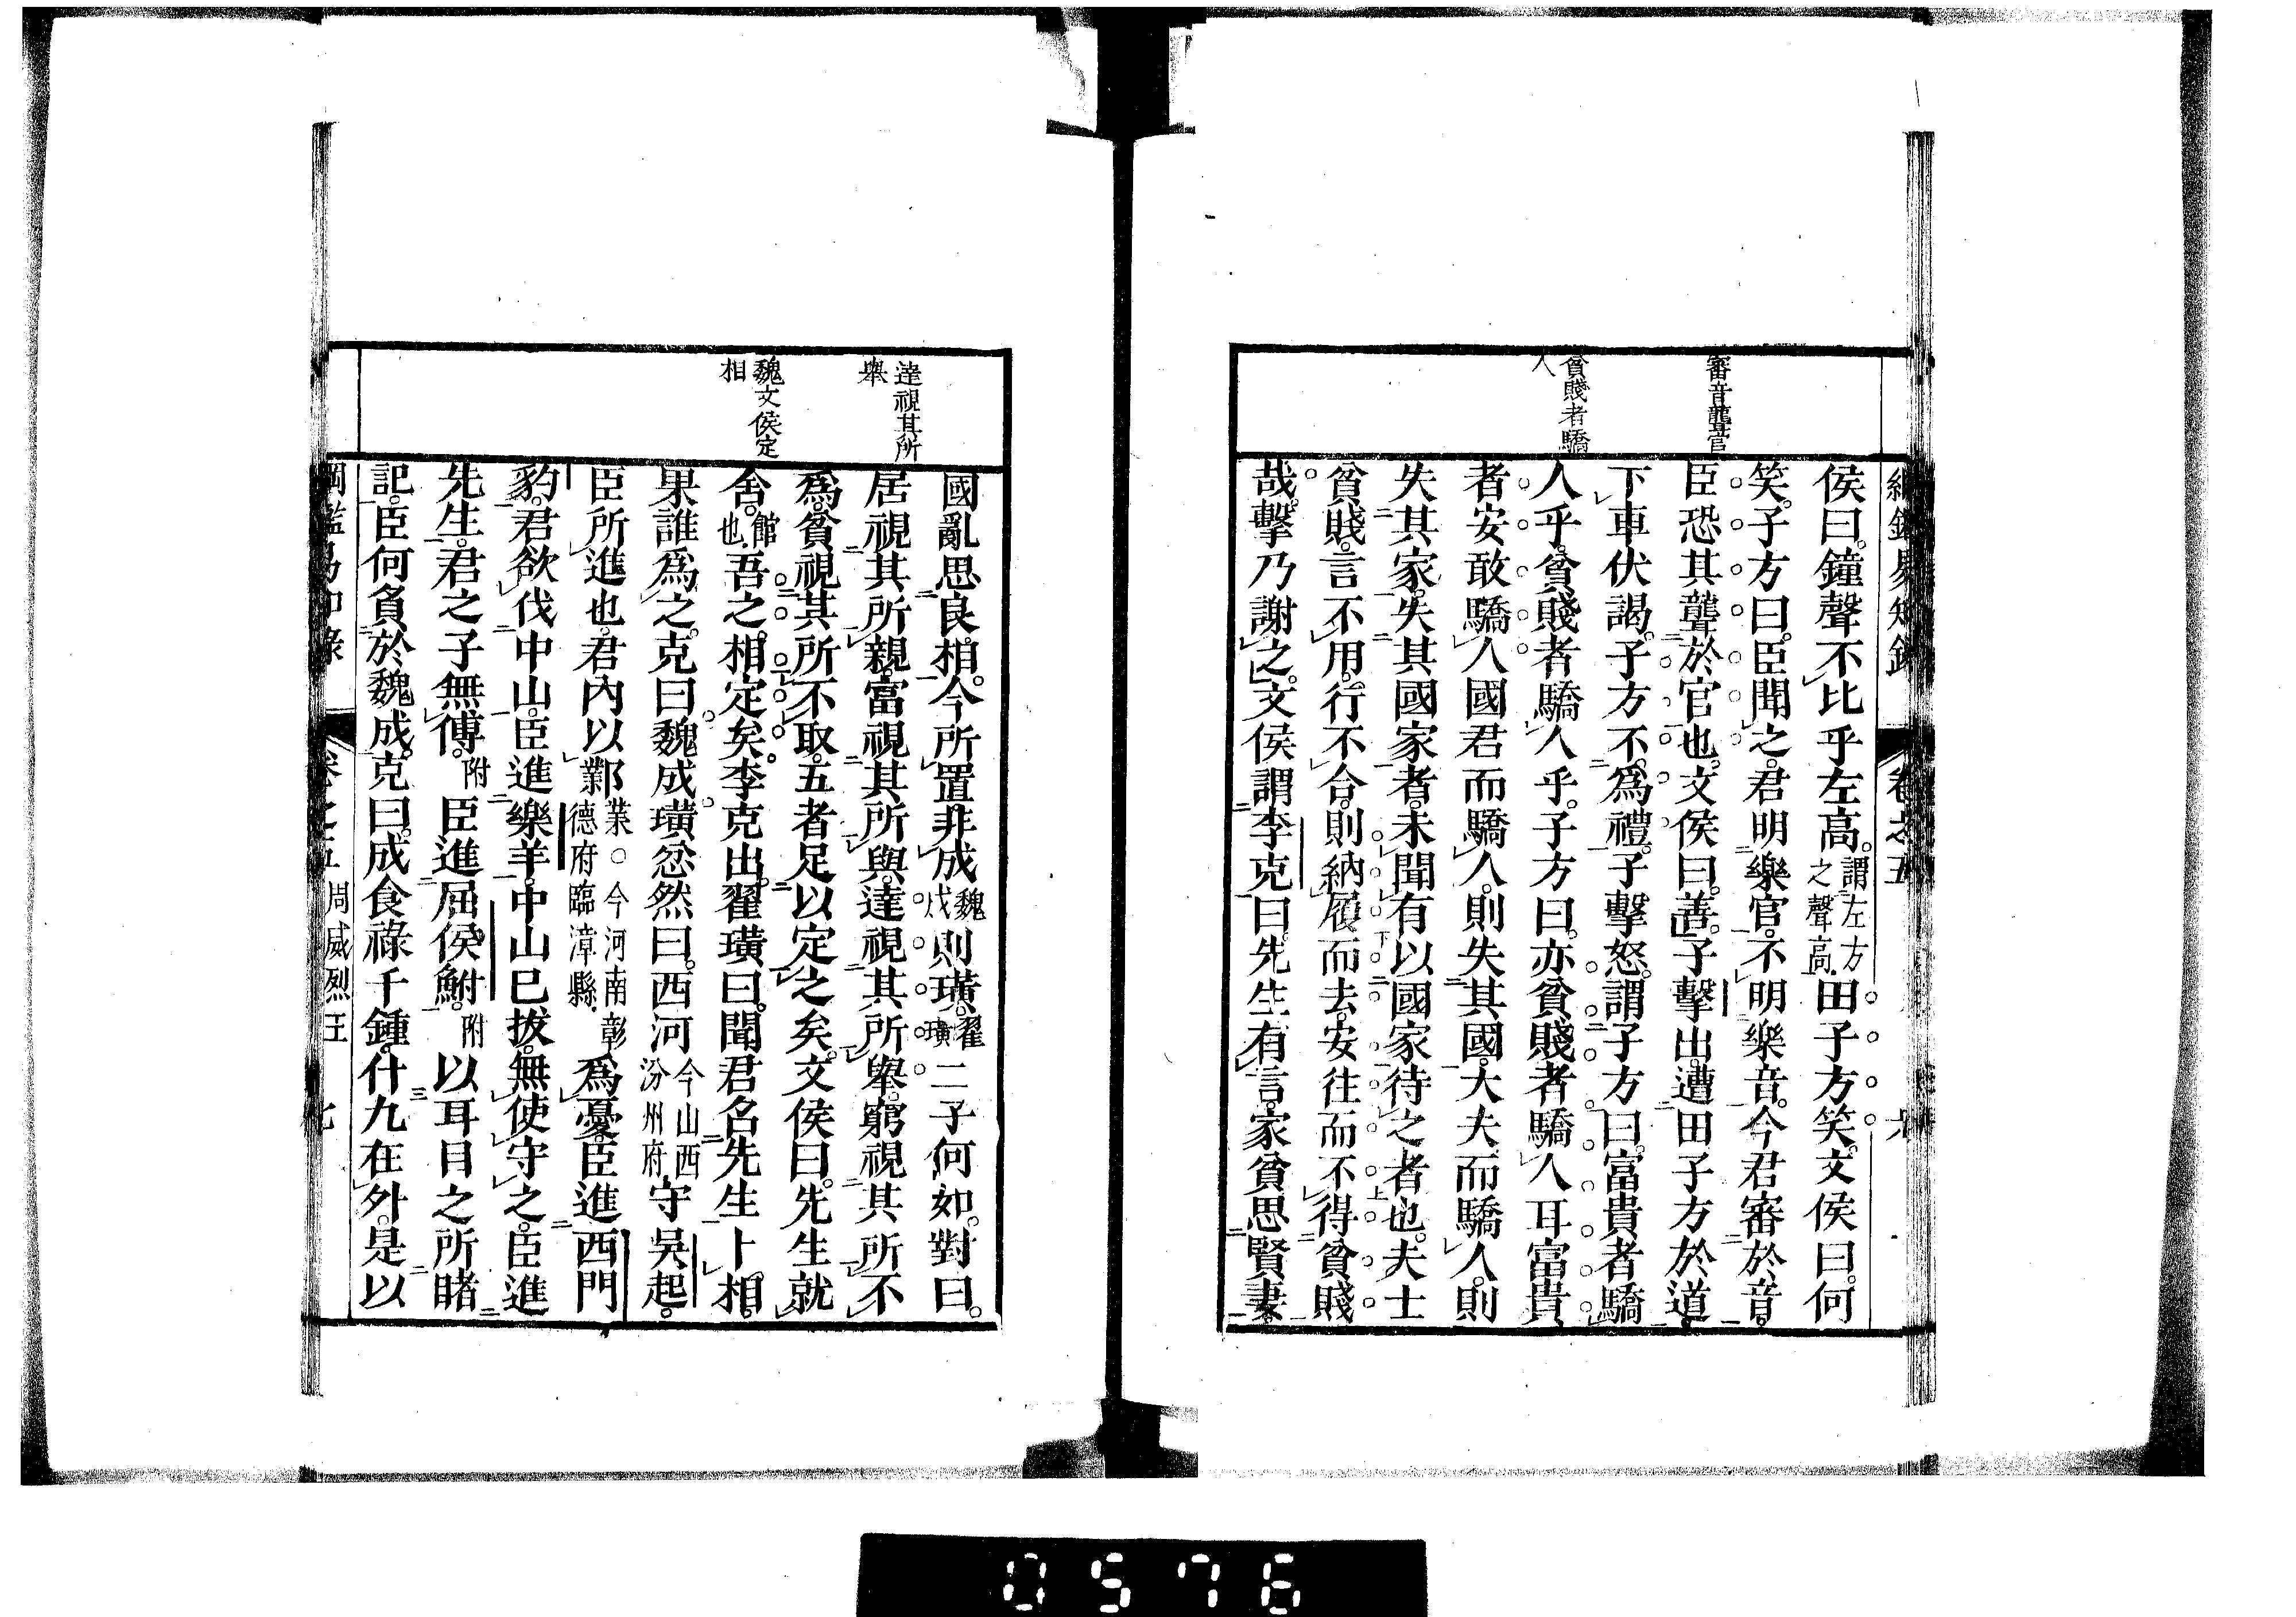 審音聾官
貧賤者驕
人
卷之五
侯曰。鐘聲不比乎左高。謂左方之聲高。田子方笑。文侯曰。何
笑。子方曰。臣聞之。君明樂官。不明樂音。今君審於音。
臣恐其聾於官也。文侯曰。善。子擊出。遭田子方於道。
下車伏謁。子方不爲禮。子擊怒。謂子方曰。富貴者驕
人乎。貧賤者驕人乎。子方曰。亦貧賤者驕人耳。富貴
者安敢驕人。國君而驕人。則失其國。大夫而驕人。則
失其家。失其國家者。未聞有以國家待之者也。夫士
貧賤。言不用。行不合。則納履而去。安往而不得貧賤
哉。擊乃謝之。文侯謂李克曰。先生有言。家貧思賢妻。
達視其所
舉
魏文侯定
相
國亂思良相。今所置。非成魏成則璜。翟璜二子何如。對曰。
居視其所親。富視其所與。達視其所舉。窮視其所不
爲。貧視其所不取。五者足以定之矣。文侯曰。先生就
舍。館也。吾之相定矣。李克出。翟璜曰。聞君召先生卜相。
果誰爲之。克曰。魏成。璜忿然曰。西河今山西汾州府守吳起。
臣所進也。君內以鄴業○今河南彰德府臨漳縣。爲憂。臣進西門
豹。君欲伐中山。臣進樂羊。中山已拔。無使守之。臣進
先生。君之子無傅。附臣進屈侯鮒。附以耳目之所睹
記。臣何負於魏成。克曰。成食祿千鍾。什九在外。是以
卷之五 周威烈王 七
0576